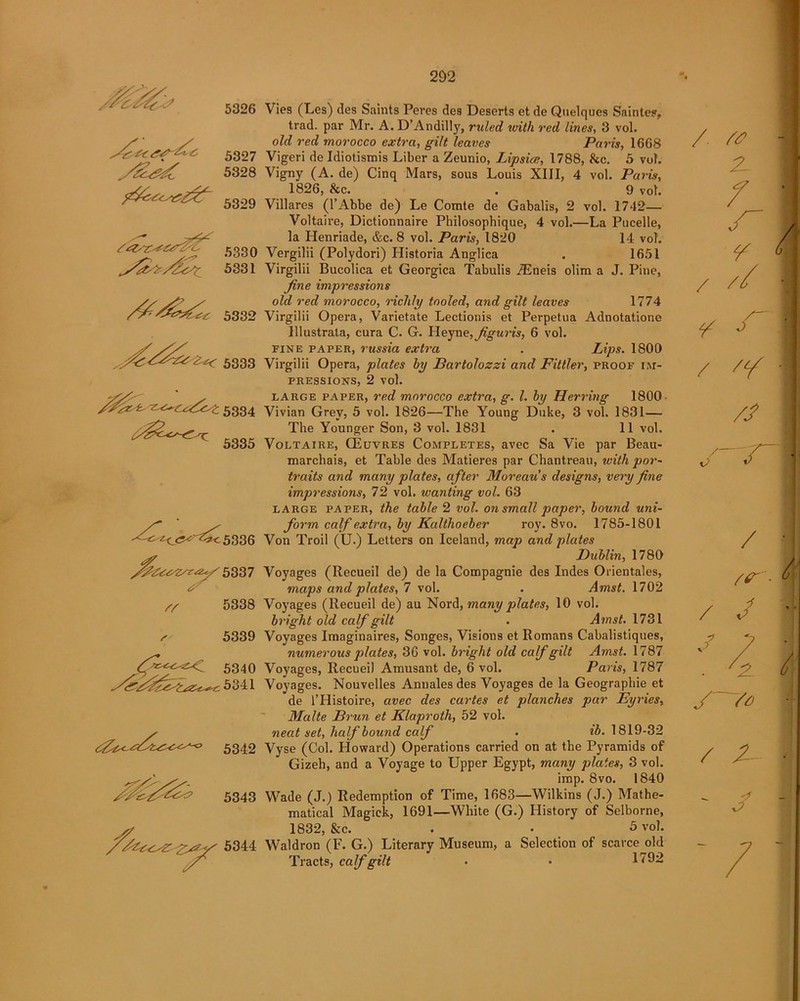 292
5326 Vies (Les) des Saints Peres des Deserts et de Quelques Saintes,
trad. par Mr. A. D'Andilly, ruled with red lines, 3 vol.
old red morocco extra, gilt leaves Paris, 1668
5327 Vigeri de Idiotismis Liber a Zeunio, Lipsiæ, 1788, &c. 5 vol.
5328 Vigny (A. de) Cinq Mars, sous Louis XIII, 4 vol. Paris,
1826, &c. . 9 vol.
5329 Villares (l'Abbe de) Le Comte de Gabalis, 2 vol. 1742—
Voltaire, Dictionnaire Philosophique, 4 vol.—La Pucelle,
la Henriade, &c. 8 vol. Paris, 1820 14 vol.
5330 Vergilii (Polydori) Historia Anglica . 1651
5331 Virgilii Bucolica et Georgica Tabulis Æneis olim a J. Pine,
fine impressions
old red morocco, richly tooled, and gilt leaves 1774
5332 Virgilii Opera, Varietate Lectionis et Perpetua Adnotatione
Illustrata, cura C. G. Heyne, figuris, 6 vol.
FINE PAPER, russia extra . Lips. 1800
5333 Virgilii Opera, plates by Bartolozzi and Fittler, PROOF IM-
PRESSIONS, 2 vol.
LARGE PAPER, red morocco extra, g. l. by Herring 1800
5334 Vivian Grey, 5 vol. 1826—The Young Duke, 3 vol. 1831—
The Younger Son, 3 vol. 1831 . 11 vol.
5335 VOLTAIRE, ŒUVRES COMPLETES, avec Sa Vie par Beau-
marchais, et Table des Matieres par Chantreau, with por-
traits and many plates, after Moreau's designs, very fine
impressions, 72 vol. wanting vol. 63
LARGE PAPER, the table 2 vol. on small paper, bound uni-
form calf extra, by Kalthoeber roy. 8vo. 1785-1801
5336 Von Troil (U.) Letters on Iceland, map and plates
Dublin, 1780
5337 Voyages (Recueil de) de la Compagnie des Indes Orientales,
maps and plates, 7 vol. . Amst. 1702
5338 Voyages (Recueil de) au Nord, many plates, 10 vol.
bright old calf gilt . Amst. 1731
5339 Voyages Imaginaires, Songes, Visions et Romans Cabalistiques,
numerous plates, 36 vol. bright old calf gilt Amst. 1787
5340 Voyages, Recueil Amusant de, 6 vol. Paris, 1787
5341 Voyages. Nouvelles Annales des Voyages de la Geographie et
de l'Histoire, avec des cartes et planches par Eyries,
Malte Brun et Klaproth, 52 vol.
neat set, half bound calf . ib. 1819-32
5342 Vyse (Col. Howard) Operations carried on at the Pyramids of
Gizeh, and a Voyage to Upper Egypt, many plates, 3 vol.
imp. 8vo. 1840
5343 Wade (J.) Redemption of Time, 1683—Wilkins (J.) Mathe-
matical Magick, 1691—White (G.) History of Selborne,
1832, &c. . . 5 vol.
5344 Waldron (F. G.) Literary Museum, a Selection of scarce old
Tracts, calf gilt . . 1792